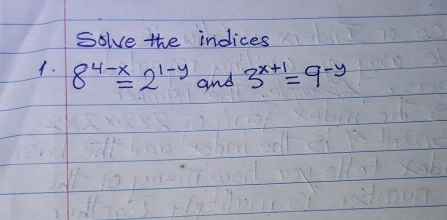 Solve the indices
1. 8^4-x = 2^1-y and 3^x+1 = 9^-y